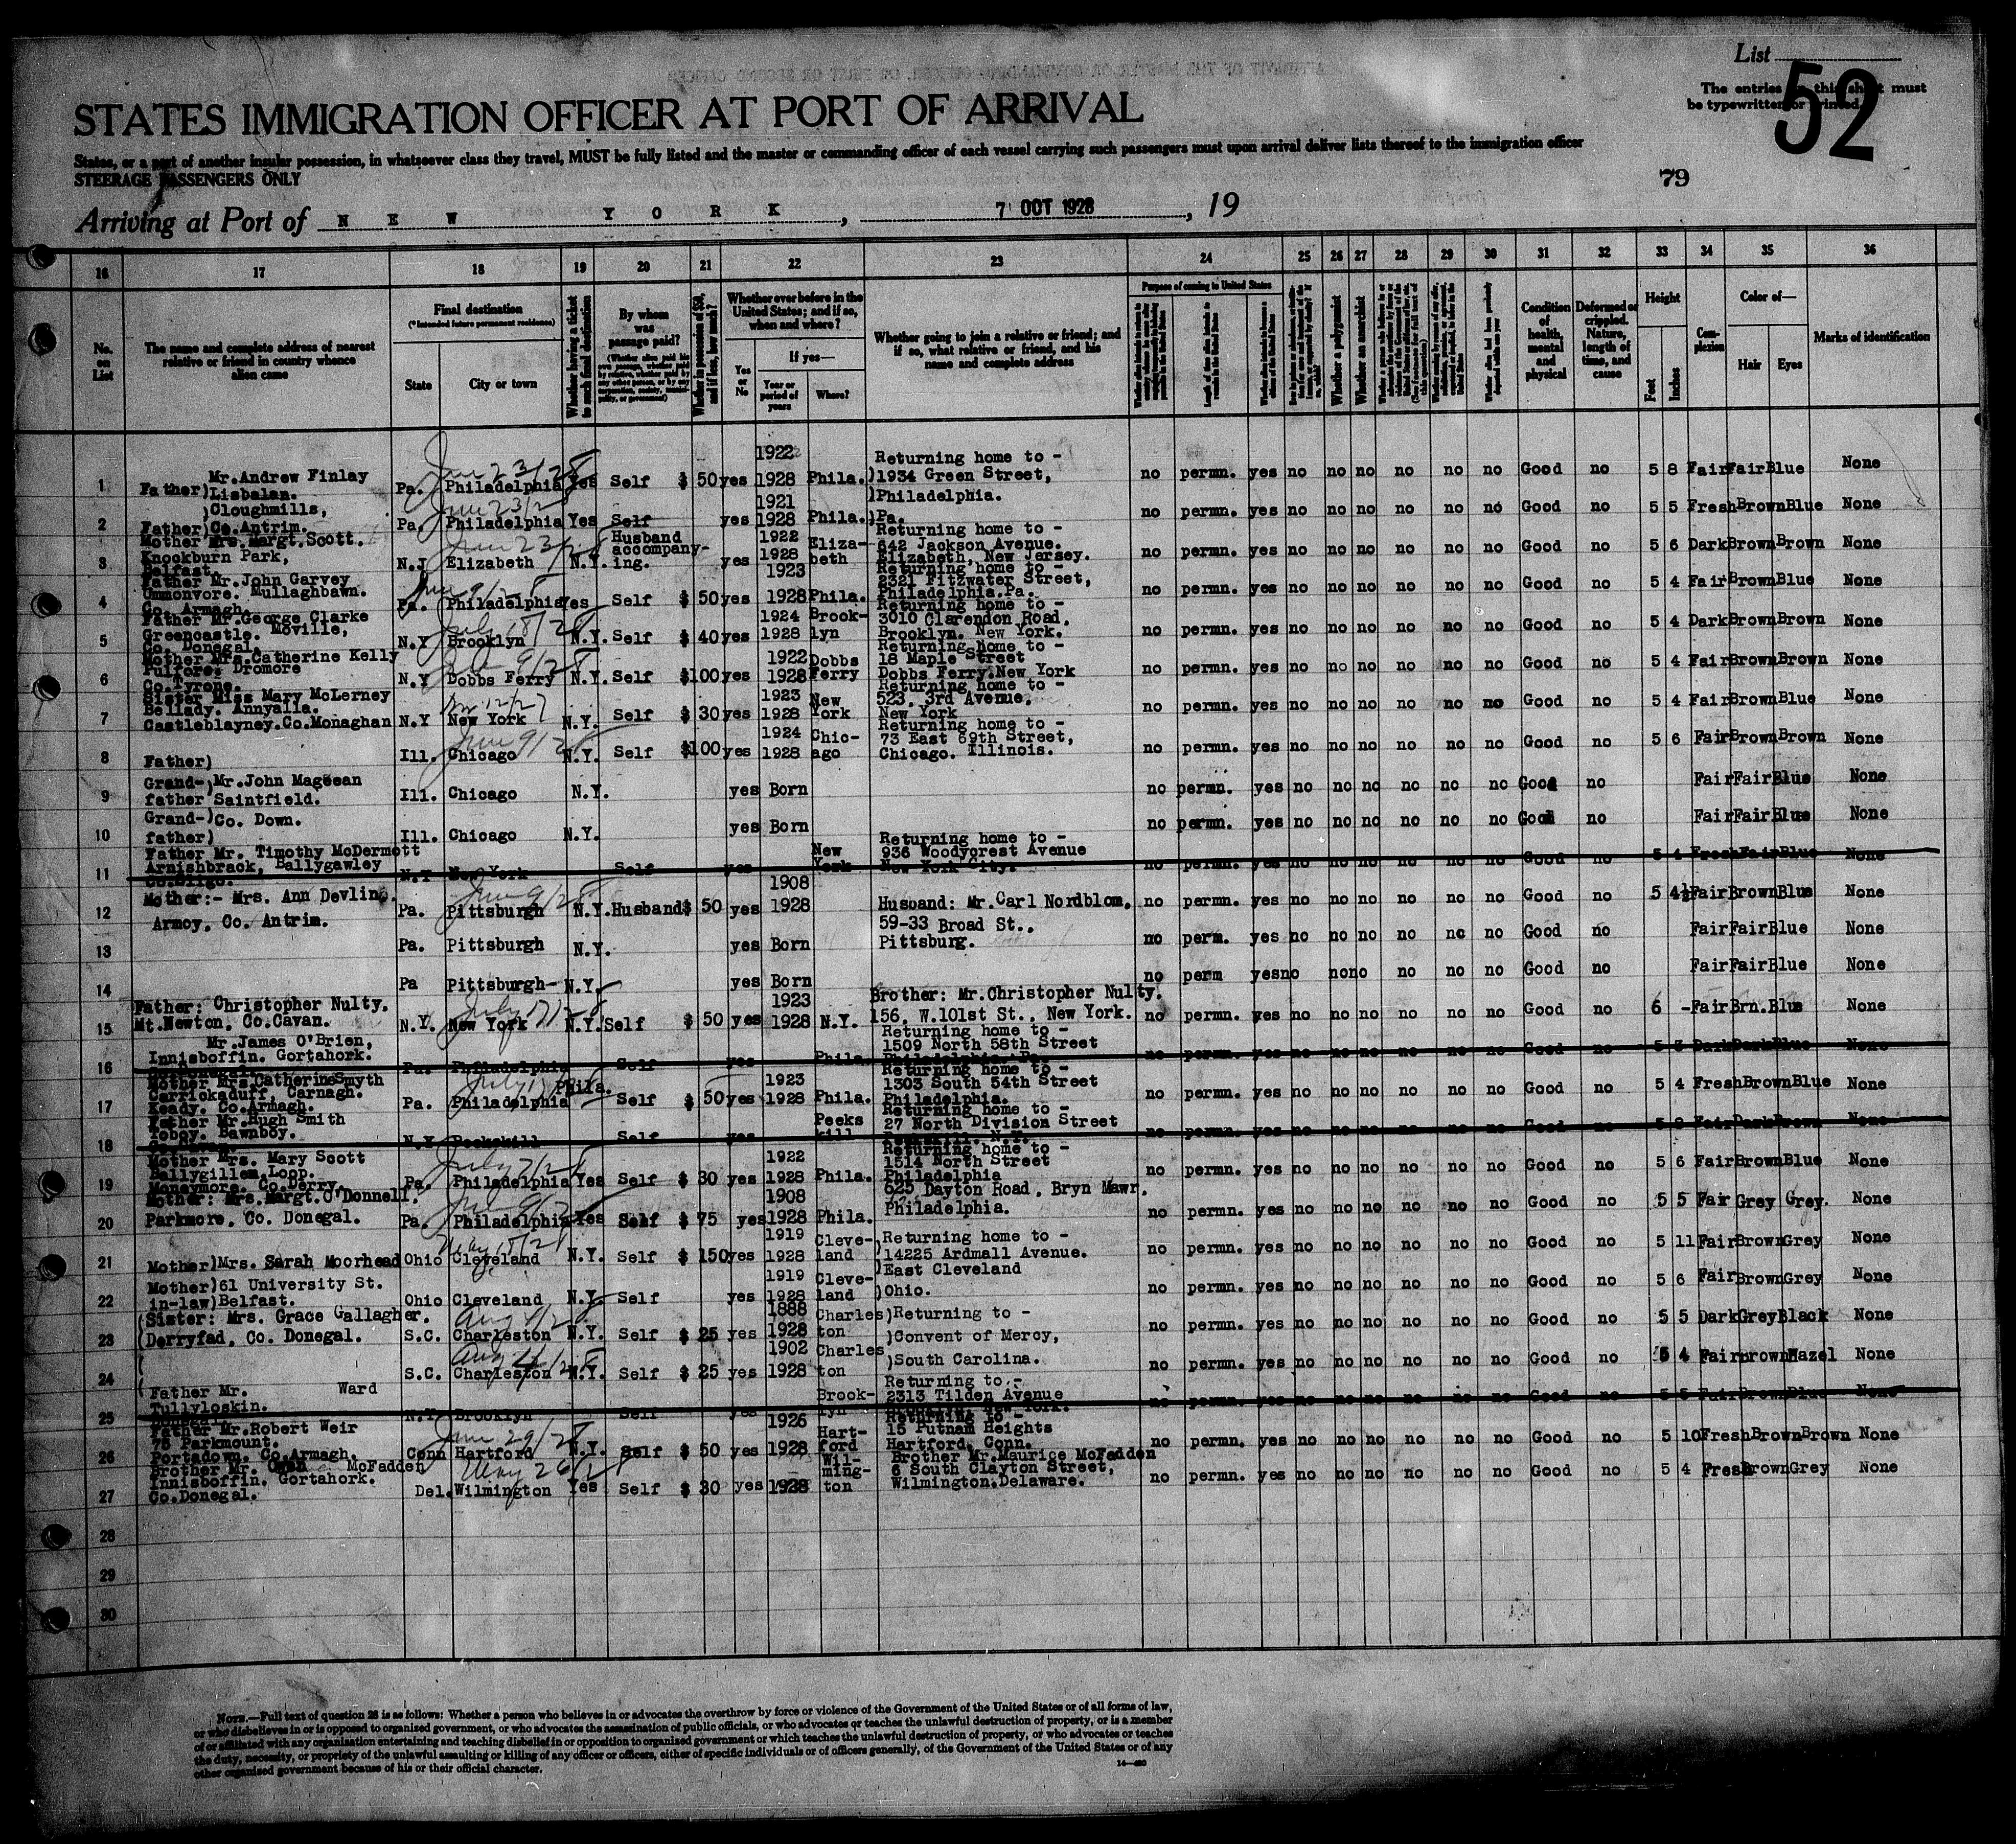 List
The entries on this sheet must
be typewritten or printed.
52
STATES IMMIGRATION OFFICER AT PORT OF ARRIVAL
States, or a port of another insular possession, in whatsoever class they travel, MUST be fully listed and the master or commanding officer of each vessel carrying such passengers must upon arrival deliver lists thereof to the immigration officer
STEERAGE PASSENGERS ONLY
79
Arriving at Port of N E W Y O R K , 7 OCT 1928 , 19
16 17 18 19 20 21 22 23 24 25 26 27 28 29 30 31 32 33 34 35 36
No. on List
The name and complete address of nearest relative or friend in country whence alien came
Final destination
(*Intended future permanent residence)
State City or town
Whether having a ticket to such final destination
By whom was passage paid?
(Whether alien paid his own passage, whether paid by relative, whether paid by any other person, or by any corporation, society, municipality, or government)
Whether in possession of $50, and if less, how much?
Whether ever before in the United States; and if so, when and where?
Yes or No
If yes—
Year or period of years
Where?
Whether going to join a relative or friend; and if so, what relative or friend, and his name and complete address
Purpose of coming to United States
Whether a polygamist
Whether an anarchist
Condition of health, mental and physical
Deformed or crippled. Nature, length of time, and cause
Height
Feet Inches
Complexion
Color of—
Hair Eyes
Marks of identification
1 Father) Mr.Andrew Finlay Lisbalan. Pa. Philadelphia Yes Self $ 50 yes 1922 1928 Phila. Returning home to - )1934 Green Street, )Philadelphia. no permn. yes no no no no no no Good no 5 8 Fair Fair Blue None
2 Father) )Cloughmills, Co.Antrim. Pa. Philadelphia Yes Self yes 1921 1928 Phila. )Pa. no permn. yes no no no no no no Good no 5 5 Fresh Brown Blue None
3 Mother Mrs.Margt.Scott. Knockburn Park, Belfast. N.J Elizabeth N.Y. Husband accompany-ing. yes 1922 1928 Eliza-beth Returning home to - 842 Jackson Avenue. Elizabeth, New Jersey. no permn. yes no no no no no no Good no 5 6 Dark Brown Brown None
4 Father Mr.John Garvey Ummonvore. Mullaghbawn. Co. Armagh. Pa. Philadelphia Yes Self $ 50 yes 1923 1928 Phila. Returning home to - 2321 Fitzwater Street, Philadelphia.Pa. no permn. yes no no no no no no Good no 5 4 Fair Brown Blue None
5 Father Mr.George Clarke Greencastle. Moville, Co. Donegal. N.Y Brooklyn N.Y. Self $ 40 yes 1924 1928 Brook-lyn Returning home to - 3010 Clarendon Road, Brooklyn. New York. no permn. yes no no no no no no Good no 5 4 Dark Brown Brown None
6 Mother Mrs.Catherine Kelly Dromore Co.Tyrone. N.Y Dobbs Ferry N.Y. Self $100 yes 1922 1928 Dobbs Ferry Returning home to - 18 Maple Street Dobbs Ferry.New York no permn. yes no no no no no no Good no 5 4 Fair Brown Brown None
7 Sister Miss Mary McLerney Bellady. Annyalla. Castleblayney.Co.Monaghan N.Y New York N.Y. Self $ 30 yes 1923 1928 New York Returning home to - 523. 3rd Avenue. New York no permn. yes no no no no no no Good no 5 4 Fair Brown Blue None
8 Father) Ill. Chicago N.Y. Self $100 yes 1924 1928 Chic-ago Returning home to - 73 East 69th Street, Chicago. Illinois. no permn. yes no no no no no no Good no 5 6 Fair Brown Brown None
9 Grand-father )Mr.John Mageean Saintfield. Ill. Chicago N.Y. yes Born no permn. yes no no no no no no Good no Fair Fair Blue None
10 Grand-father) )Co. Down. Ill. Chicago N.Y. yes Born no permn. yes no no no no no no Good no Fair Fair Blue None
11 Father Mr. Timothy McDermott Arnishbrack, Ballygawley Co.Sligo. N.Y New York Self yes New York Returning home to - 936 Woodycrest Avenue New York City. no permn. yes no no no no no no Good no 5 4 Fresh Fair Blue None
12 Mother:- Mrs. Ann Devlin. Armoy, Co. Antrim. Pa. Pittsburgh N.Y. Husband $ 50 yes 1908 1928 Husband: Mr.Carl Nordblom. no permn. yes no no no no no no Good no 5 4½ Fair Brown Blue None
13 Pa. Pittsburgh N.Y. yes Born 59-33 Broad St.. Pittsburg. no perm. yes no no no no no no Good no Fair Fair Blue None
14 Pa Pittsburgh- N.Y. yes Born no perm yes no no no no no no Good no Fair Fair Blue None
15 Father: Christopher Nulty. Mt.Newton, Co.Cavan. N.Y. New York N.Y. Self $ 50 yes 1923 1928 N.Y. Brother: Mr.Christopher Nulty. 156, W.101st St., New York. no permn. yes no no no no no no Good no 6 - Fair Brn. Blue None
16 Mr.James O'Brien, Innisboffin. Gortahork. Pa. Philadelphia Self yes Phila. Returning home to - 1509 North 58th Street Philadelphia. Pa. no permn. yes no no no no no no Good no 5 Dark Dark Blue None
17 Mother Mrs.Catherine Smyth Carrickaduff, Carnagh. Keady. Co.Armagh. Pa. Philadelphia Phila. Self $ 50 yes 1923 1928 Phila. Returning home to - 1303 South 54th Street Philadelphia. no permn. yes no no no no no no Good no 5 4 Fresh Brown Blue None
18 Father Mr.Hugh Smith Toboy. Bawnboy. N.Y Peekskill Self yes Peeks kill Returning home to - 27 North Division Street no permn. yes no no no no no no Good no Fair Dark Brown None
19 Mother Mrs. Mary Scott Ballygillen Loop. Moneymore. Co.Derry. Pa. Philadelphia Yes Self $ 30 yes 1922 1928 Phila. Returning home to - 1514 North Street Philadelphia no permn. yes no no no no no no Good no 5 6 Fair Brown Blue None
20 Mother: Mrs.Margt.O'Donnell. Parkmore, Co. Donegal. Pa. Philadelphia Yes Self $ 75 yes 1908 1928 Phila. 625 Dayton Road, Bryn Mawr, Philadelphia. no permn. yes no no no no no no Good no 5 5 Fair Grey Grey. None
21 Mother)Mrs. Sarah Moorhead Ohio Cleveland N.Y. Self $ 150 yes 1919 1928 Cleve-land Returning home to - )14225 Ardmall Avenue. no permn. yes no no no no no no Good no 5 11 Fair Brown Grey None
22 Mother)in-law) 61 University St. Belfast. Ohio Cleveland N.Y. Self yes 1919 1928 Cleve-land )East Cleveland )Ohio. no permn. yes no no no no no no Good no 5 6 Fair Brown Grey None
23 (Sister: Mrs. Grace Gallagher. (Derryfad, Co. Donegal. S.C. Charleston N.Y. Self $ 25 yes 1888 1928 Charles ton )Returning to - )Convent of Mercy, no permn. yes no no no no no no Good no 5 5 Dark Grey Black None
24 S.C. Charleston N.Y. Self $ 25 yes 1902 1928 Charles ton )South Carolina. no permn. yes no no no no no no Good no 5 4 Fair Brown Hazel None
25 Father Mr. Ward Tullyloskin. Donegal. N.Y. Brooklyn Self yes Brook-lyn Returning to - 2313 Tilden Avenue Brooklyn, New York. no permn. yes no no no no no no Good no 5 5 Fair Brown Blue None
26 Father Mr.Robert Weir 75 Parkmount. Portadown. Co.Armagh. Conn Hartford N.Y. Self $ 50 yes 1926 1928 Hart-ford Returning to - 15 Putnam Heights Hartford, Conn. no permn. yes no no no no no no Good no 5 10 Fresh Brown Brown None
27 Brother Mr. McFadden Innisboffin. Gortahork. Co.Donegal. Del. Wilmington Yes Self $ 30 yes 1928 Wil-ming-ton Brother Mr.Maurice McFadden 6 South Clayton Street, Wilmington.Delaware. no permn. yes no no no no no no Good no 5 4 Fresh Brown Grey None
28
29
30
NOTE.—Full text of question 28 is as follows: Whether a person who believes in or advocates the overthrow by force or violence of the Government of the United States or of all forms of law,
or who disbelieves in or is opposed to organized government, or who advocates the assassination of public officials, or who advocates or teaches the unlawful destruction of property, or is a member
of or affiliated with any organization entertaining and teaching disbelief in or opposition to organized government or which teaches the unlawful destruction of property, or who advocates or teaches
the duty, necessity, or propriety of the unlawful assaulting or killing of any officer or officers, either of specific individuals or of officers generally, of the Government of the United States or of any
other organized government because of his or their official character.